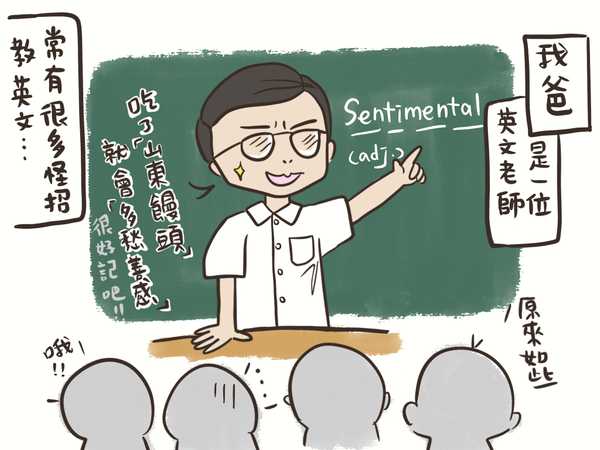 我爸
是一位
英文老師
常有很多怪招
教英文...
Sentimental
(adj.)
吃了「山東饅頭」
就會「多愁善感」
很好記吧!!
哦!!
...
原來如此